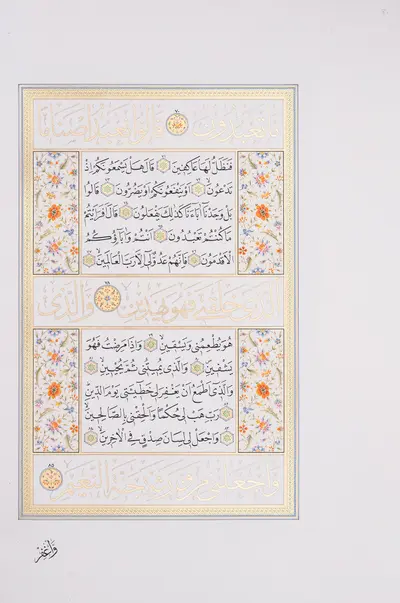 مَا تَعْبُدُونَ قَالُوا نَعْبُدُ أَصْنَامًا
فَنَظَلُّ لَهَا عَاكِفِينَ قَالَ هَلْ يَسْمَعُونَكُمْ اِذْ
تَدْعُونَ اَوْ يَنْفَعُونَكُمْ اَوْ يَضُرُّونَ قَالُوا
بَلْ وَجَدْنَا آبَاءَنَا كَذٰلِكَ يَفْعَلُونَ قَالَ اَفَرَاَيْتُمْ
مَا كُنْتُمْ تَعْبُدُونَ اَنْتُمْ وَآبَاؤُكُمُ
الْاَقْدَمُونَ فَاِنَّهُمْ عَدُوٌّ لِي اِلَّا رَبَّ الْعَالَمِينَ
اَلَّذِي خَلَقَنِي فَهُوَ يَهْدِينِ وَالَّذِي
هُوَ يُطْعِمُنِي وَيَسْقِينِ وَاِذَا مَرِضْتُ فَهُوَ
يَشْفِينِ وَالَّذِي يُمِيتُنِي ثُمَّ يُحْيِينِ
وَالَّذِي اَطْمَعُ اَنْ يَغْفِرَ لِي خَطِيئَتِي يَوْمَ الدِّينِ
رَبِّ هَبْ لِي حُكْمًا وَاَلْحِقْنِي بِالصَّالِحِينَ
وَاجْعَلْ لِي لِسَانَ صِدْقٍ فِي الْاٰخِرِينَ
وَاجْعَلْنِي مِنْ وَرَثَةِ جَنَّةِ النَّعِيمِ
وَاغْفِرْ